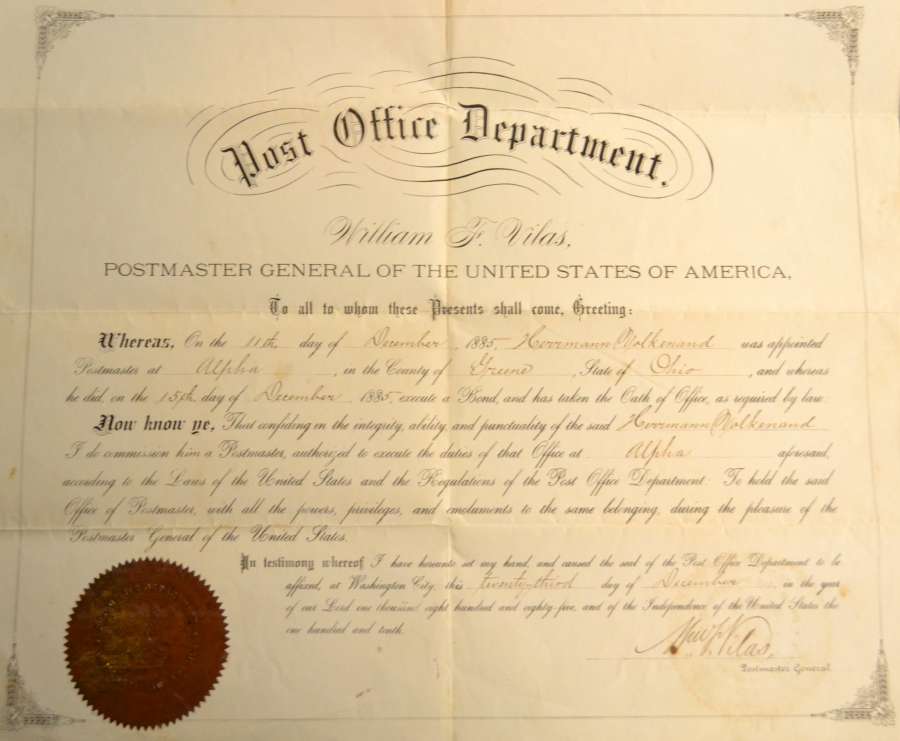 Post Office Department.
William F. Vilas,
POSTMASTER GENERAL OF THE UNITED STATES OF AMERICA,
To all to whom these Presents shall come, Greeting:
Whereas, On the 11th day of December, 1885, Herrmann Volkenand was appointed
Postmaster at Alpha, in the County of Greene, State of Ohio, and whereas
he did, on the 15th day of December, 1885, execute a Bond, and has taken the Oath of Office, as required by law:
Now know ye, That confiding in the integrity, ability, and punctuality of the said Herrmann Volkenand
I do commission him a Postmaster, authorized to execute the duties of that Office at Alpha aforesaid,
according to the Laws of the United States and the Regulations of the Post Office Department: To hold the said
Office of Postmaster, with all the powers, privileges, and emoluments to the same belonging, during the pleasure of the
Postmaster General of the United States.
In testimony whereof I have hereunto set my hand, and caused the seal of the Post Office Department to be
affixed, at Washington City, this twenty-third day of December, in the year
of our Lord one thousand eight hundred and eighty-five, and of the Independence of the United States the
one hundred and tenth.
Wm F. Vilas,
Postmaster General.